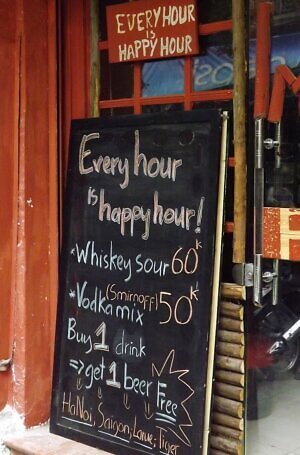 EVERY HOUR
IS
HAPPY HOUR
Every hour
is happy hour!
*Whiskey sour 60K
*Vodka mix (Smirnoff) 50K
Buy 1 drink
=> get 1 beer Free
HaNoi, Saigon, Larue, Tiger